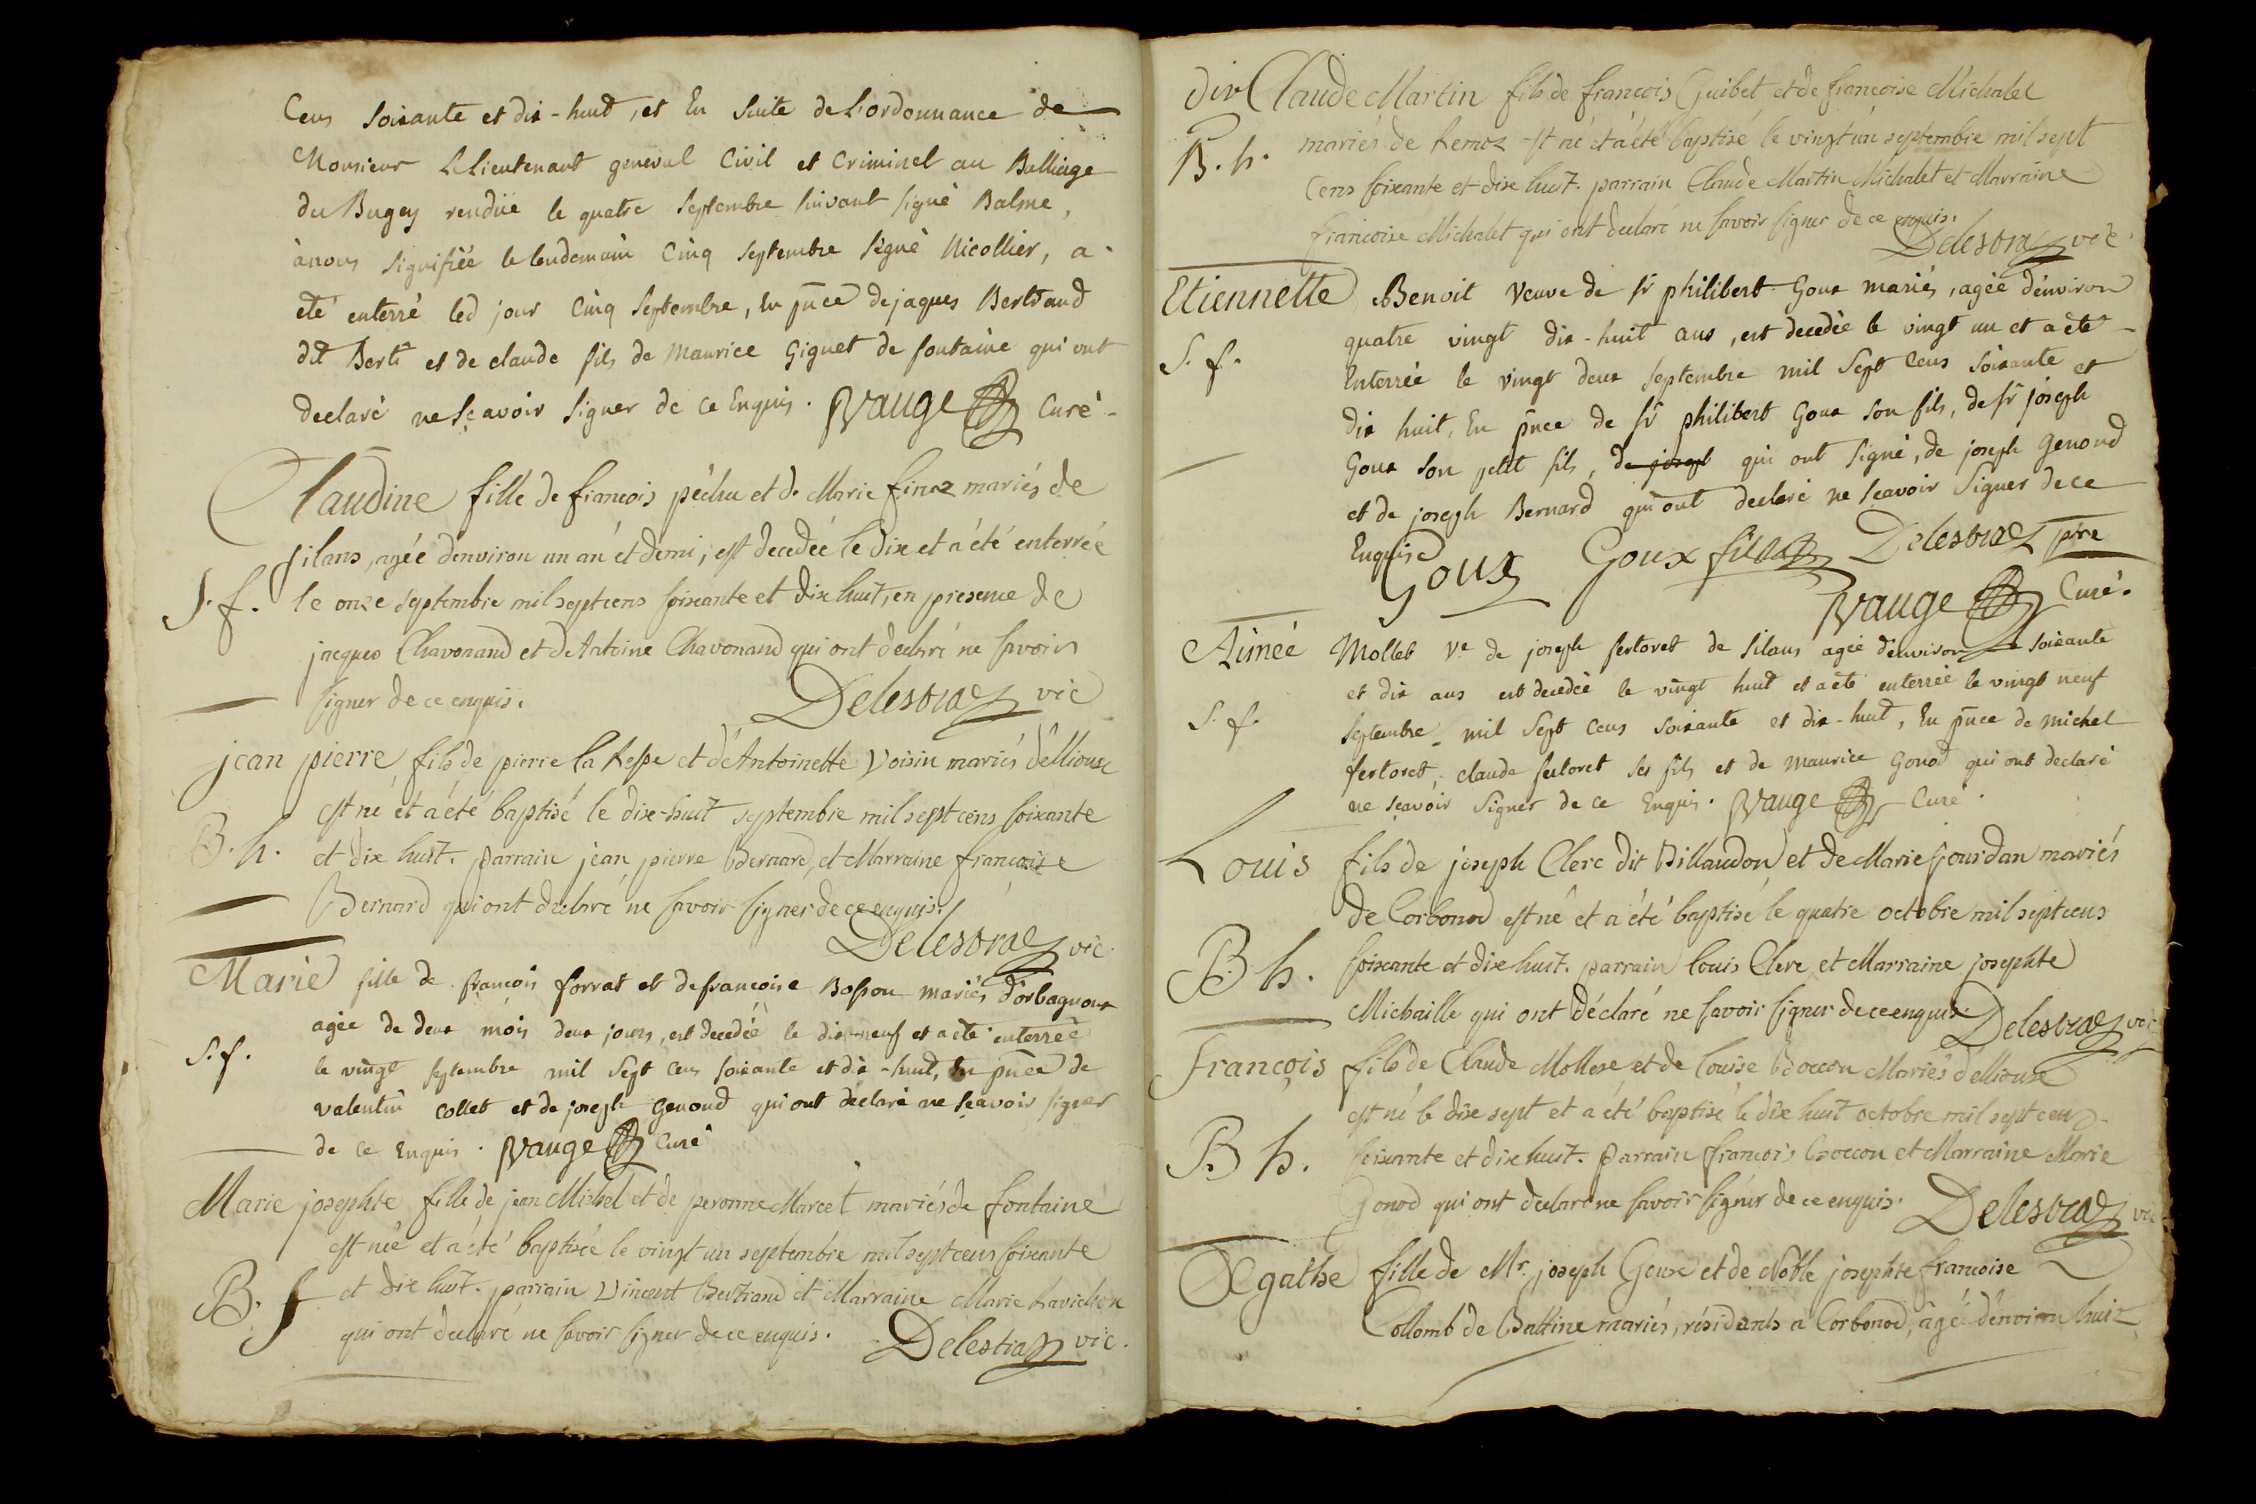 Cens soixante et dix-huit, et En suite de L'ordonnance de
Monsieur Le lieutenant general Civil et Criminel au Balliage
du Bugey rendüe le quatre Septembre suivant signé Balme,
ànous signifiée le lendemain Cinq Septembre signé Nicollier, a
eté enterré led jour Cinq Septembre, En pñce de jaques Bertrand
dit Berti et de claude fils de Maurice Giguet de fontaine qui ont
declaré ne sçavoir signer de ce Enquis. Vauge Curé
Claudine fille de françois pechu et de Marie finaz mariés de
silans, agée d'environ un an et demi, est decedée le dix et a été enterrée
S. f. le onze septembre mil sept cens soixante et dix huit, en presence de
jacques Chavonand et de Antoine Chavonand qui ont déclaré ne savoir
signer de ce enquis. Delestraz vic
jean pierre fils de pierre la Respe et d'Antoinette Voisin mariés d'Eilloux
est né et a été baptisé le dix-huit septembre mil sept cens soixante
B. h. et dix huit. parrain jean pierre Bernard, et Marraine françoise
Bernard qui ont déclaré ne savoir signer de ce enquis.
Delestraz vic.
Marie fille de françois forrat et de francoise Bosson mariés d'orbagnoux
agée de deux mois deux jours, est decedée le dix-neuf et a eté enterrée
S. f. le vingt septembre mil sept cens soixante et dix-huit, En pñce de
valentin Collet et de joseph Genoud qui ont declaré ne sçavoir signer
de ce Enquis. Vauge Curé
Marie josephte fille de jean Michel et de peronne Marcet mariés de fontaine
est née et a été baptisée le vingt un septembre mil sept cens soixante
B. f et dix huit. parrain Vincent Bertrand et Marraine Marie
qui ont déclaré ne savoir signer de ce enquis. Delestraz vic.
Claude Martin fils de françois Guibet et de françoise Michalet
B. h. mariés de Remoz est né et a été baptisé le vingt un septembre mil sept
Cens soixante et dix huit. parrain Claude Martin Michalet et Marraine
françoise Michalet qui ont declaré ne savoir signer de ce enquis.
Delestraz vic.
Etiennette Benoit Veuve de sr philibert Goux mariés, agée d'environ
quatre vingt dix-huit ans, est decedée le vingt un et a eté
S. f. Enterrée le vingt deux septembre mil Sept Cens soixante et
dix huit, En pñce de sr philibert Goux son fils, de sr joseph
Goux son petit fils, de josepl qui ont signé, de joseph Genoud
et de joseph Bernard qui ont declaré ne sçavoir signer de ce
Enquis Goux Goux fils Delestraz ptre
Vauge Curé.
Aimée Mollet Ve de joseph fertoret de silans agée d'environ soixante
et dix ans est decedée le vingt huit et a eté enterrée le vingt neuf
S. f. septembre mil Sept cens soixante et dix-huit, En pñce de Michel
fertoret, claude fertoret ses fils et de Maurice Gonod qui ont declaré
ne sçavoir signer de ce Enquis. Vauge Curé.
Louis fils de joseph Clerc dit Billaudon et de Marie jourdan mariés
de Corbonod est né et a été baptisé le quatre octobre mil sept cens
B h. soixante et dix huit. parrain louis Clerc, et Marraine josephte
Michaille qui ont déclaré ne savoir signer de ce enquis. Delestraz vic
François fils de Claude Mollex et de louise Boccon Mariés d'Eilloux
est né le dix sept et a été baptisé le dix huit octobre mil sept cens
B h. soixante et dix huit. Parrain françois Boccon et Marraine Marie
Gonod qui ont déclaré ne savoir signer de ce enquis. Delestraz vic
Agathe fille de Mr. joseph Goux et de Noble josephte françoise
Collomb de Battine mariés, résidants a Corbonod, âgé d'environ huit